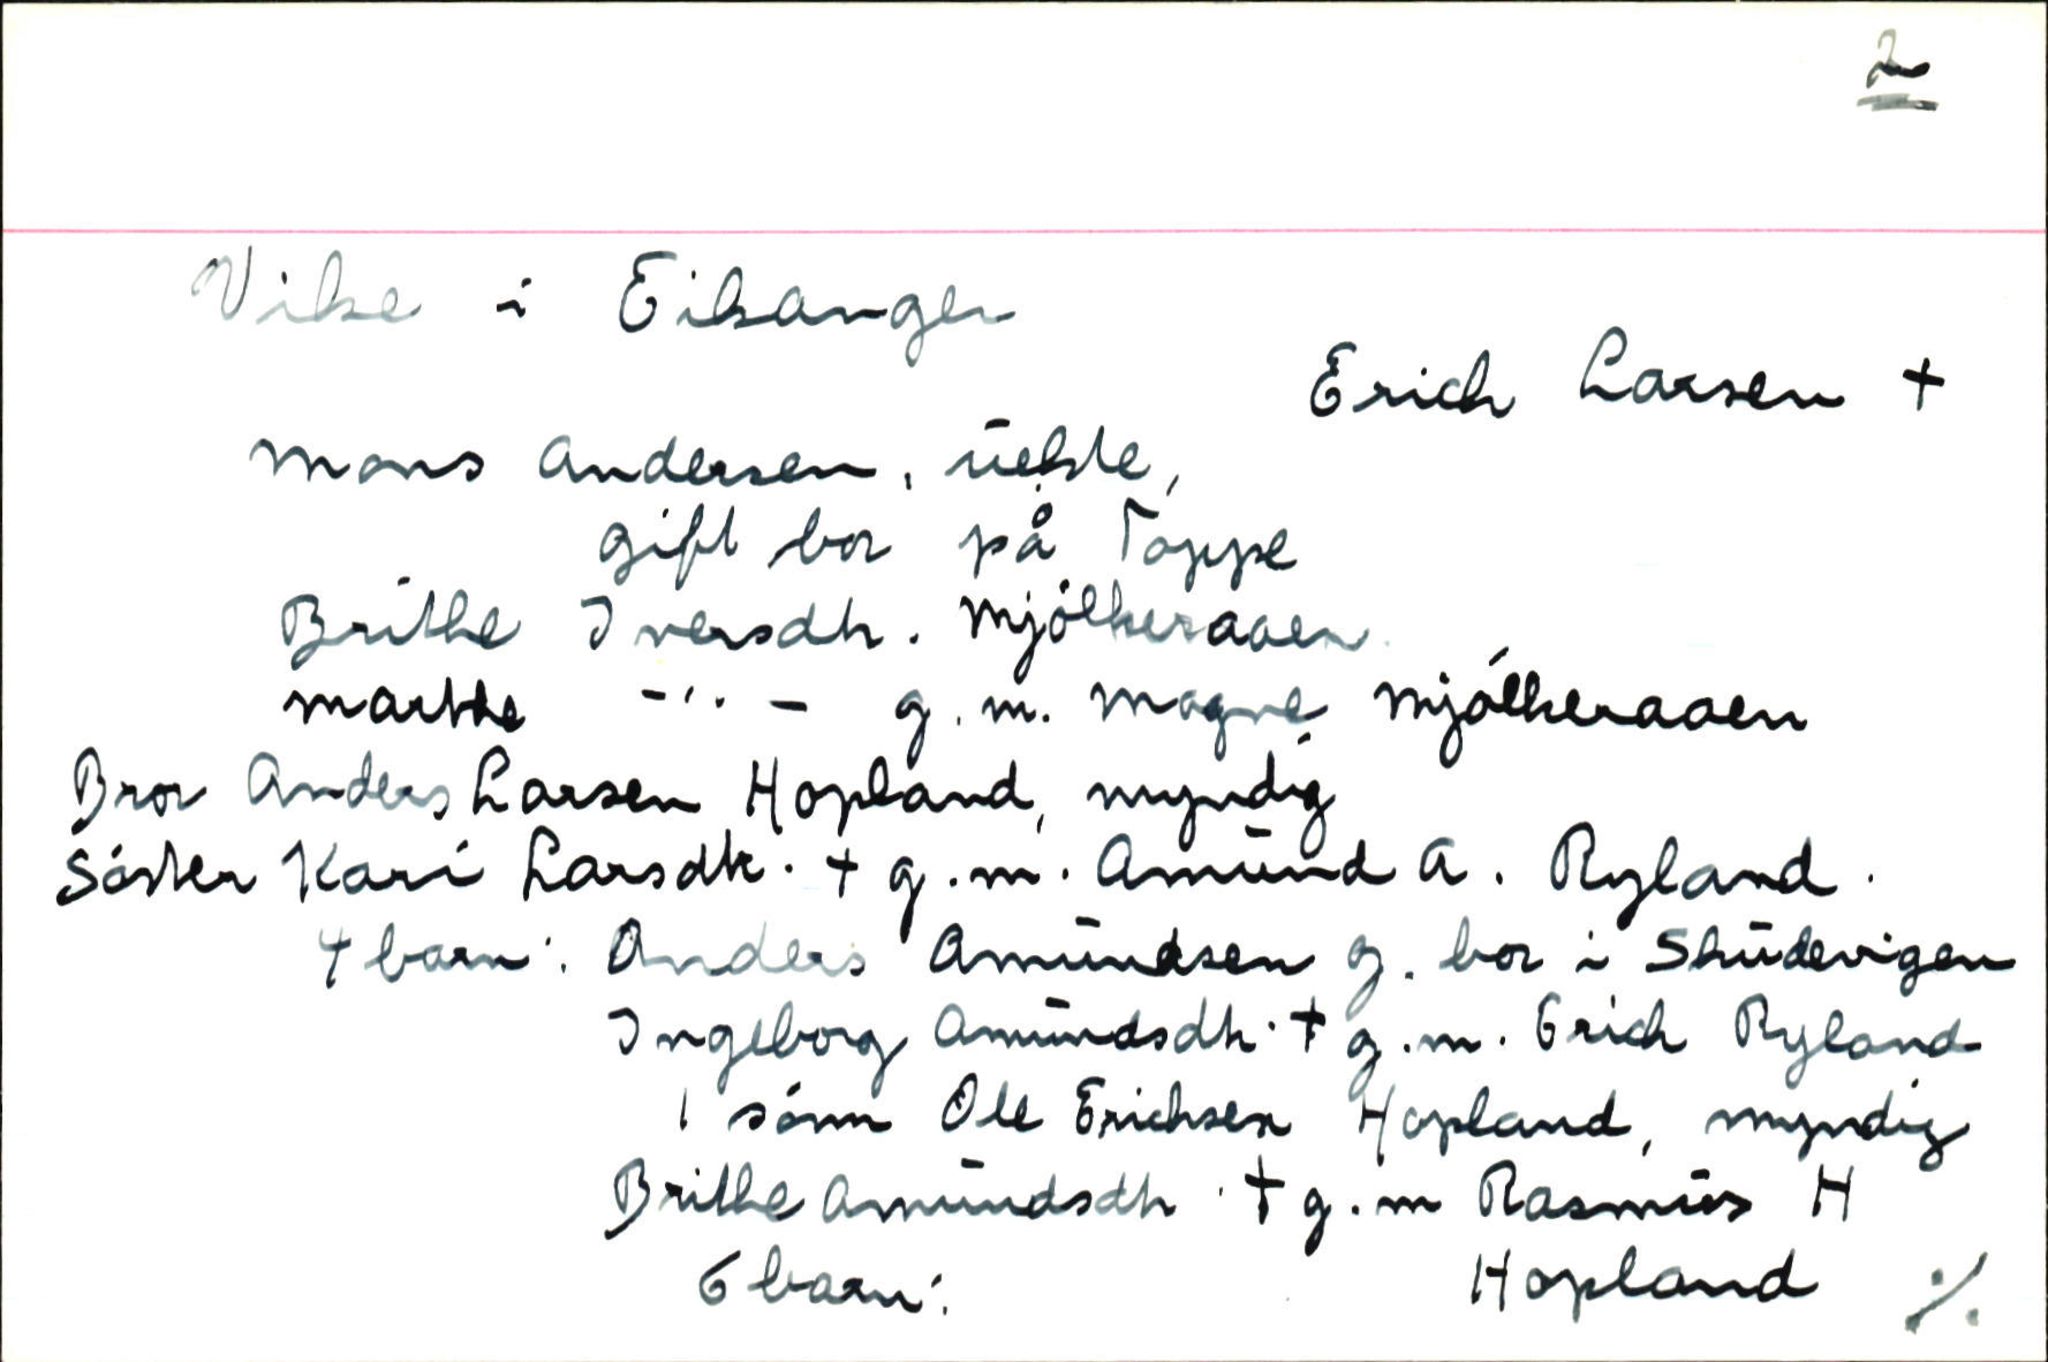 2
Vike i Eikanger
Erich Larsen +
Mons Andersen, uekte,
gift bor på Toppe
Brithe Iversdtr. Mjölkeraaen.
Marthe -"- g.m. Magne Mjölkeraaen
Bror Anders Larsen Hopland, myndig
Söster Kari Larsdtr. + g.m. Amund A. Ryland.
4 barn: Anders Amundsen g. bor i Skudevigen
Ingeborg Amundsdtr. + g.m. Erich Ryland
1 sönn Ole Erichsen Hopland, myndig
Brithe Amundsdtr. + g.m Rasmus H
6 barn: Hopland ./.